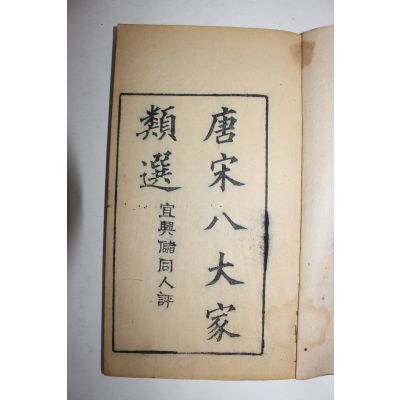 唐宋八大家
類選
宜興儲同人評